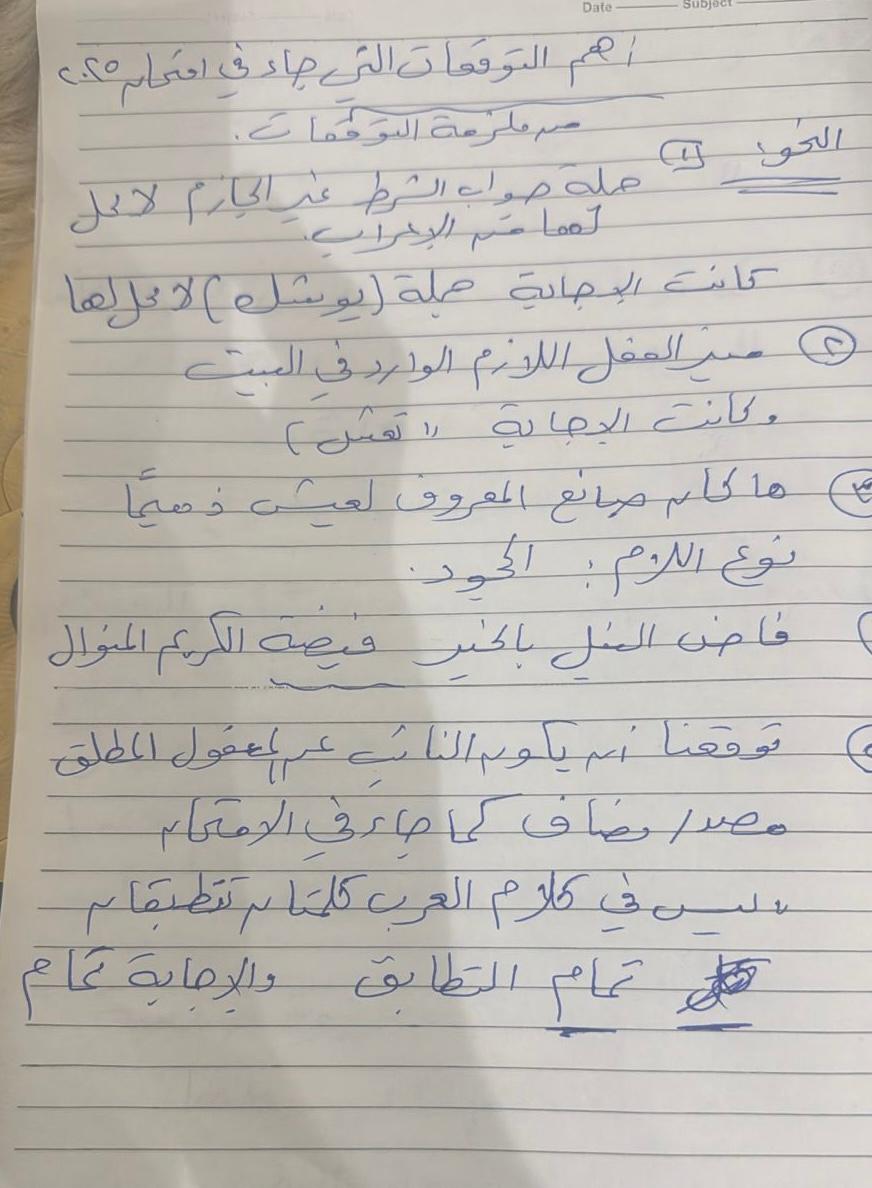 Date Subject
أهم التوقعات التي جاءت في امتحان ٢٠٢٥
من ملزمة التوقعات.
النحو: ١ جملة جواب الشرط غير الجازم لا محل
لها من الإعراب.
كانت الإجابة جملة (يوشك) لا محل لها
٢ ميز الفعل اللازم الوارد في البيت
وكانت الإجابة "تمثل)
٣ ما كان صانع المعروف ليعيش ذميمًا
نوع اللام: الجحود.
فاض النيل بالخير فيضة الكريم المنوال
توقعنا أن يكون النائب عن المفعول المطلق
مصدر/ مضاف كما جاء في الامتحان
"ليس في كلام العرب كلمتان تتطبقان
تمام التطابق والإجابة تمام